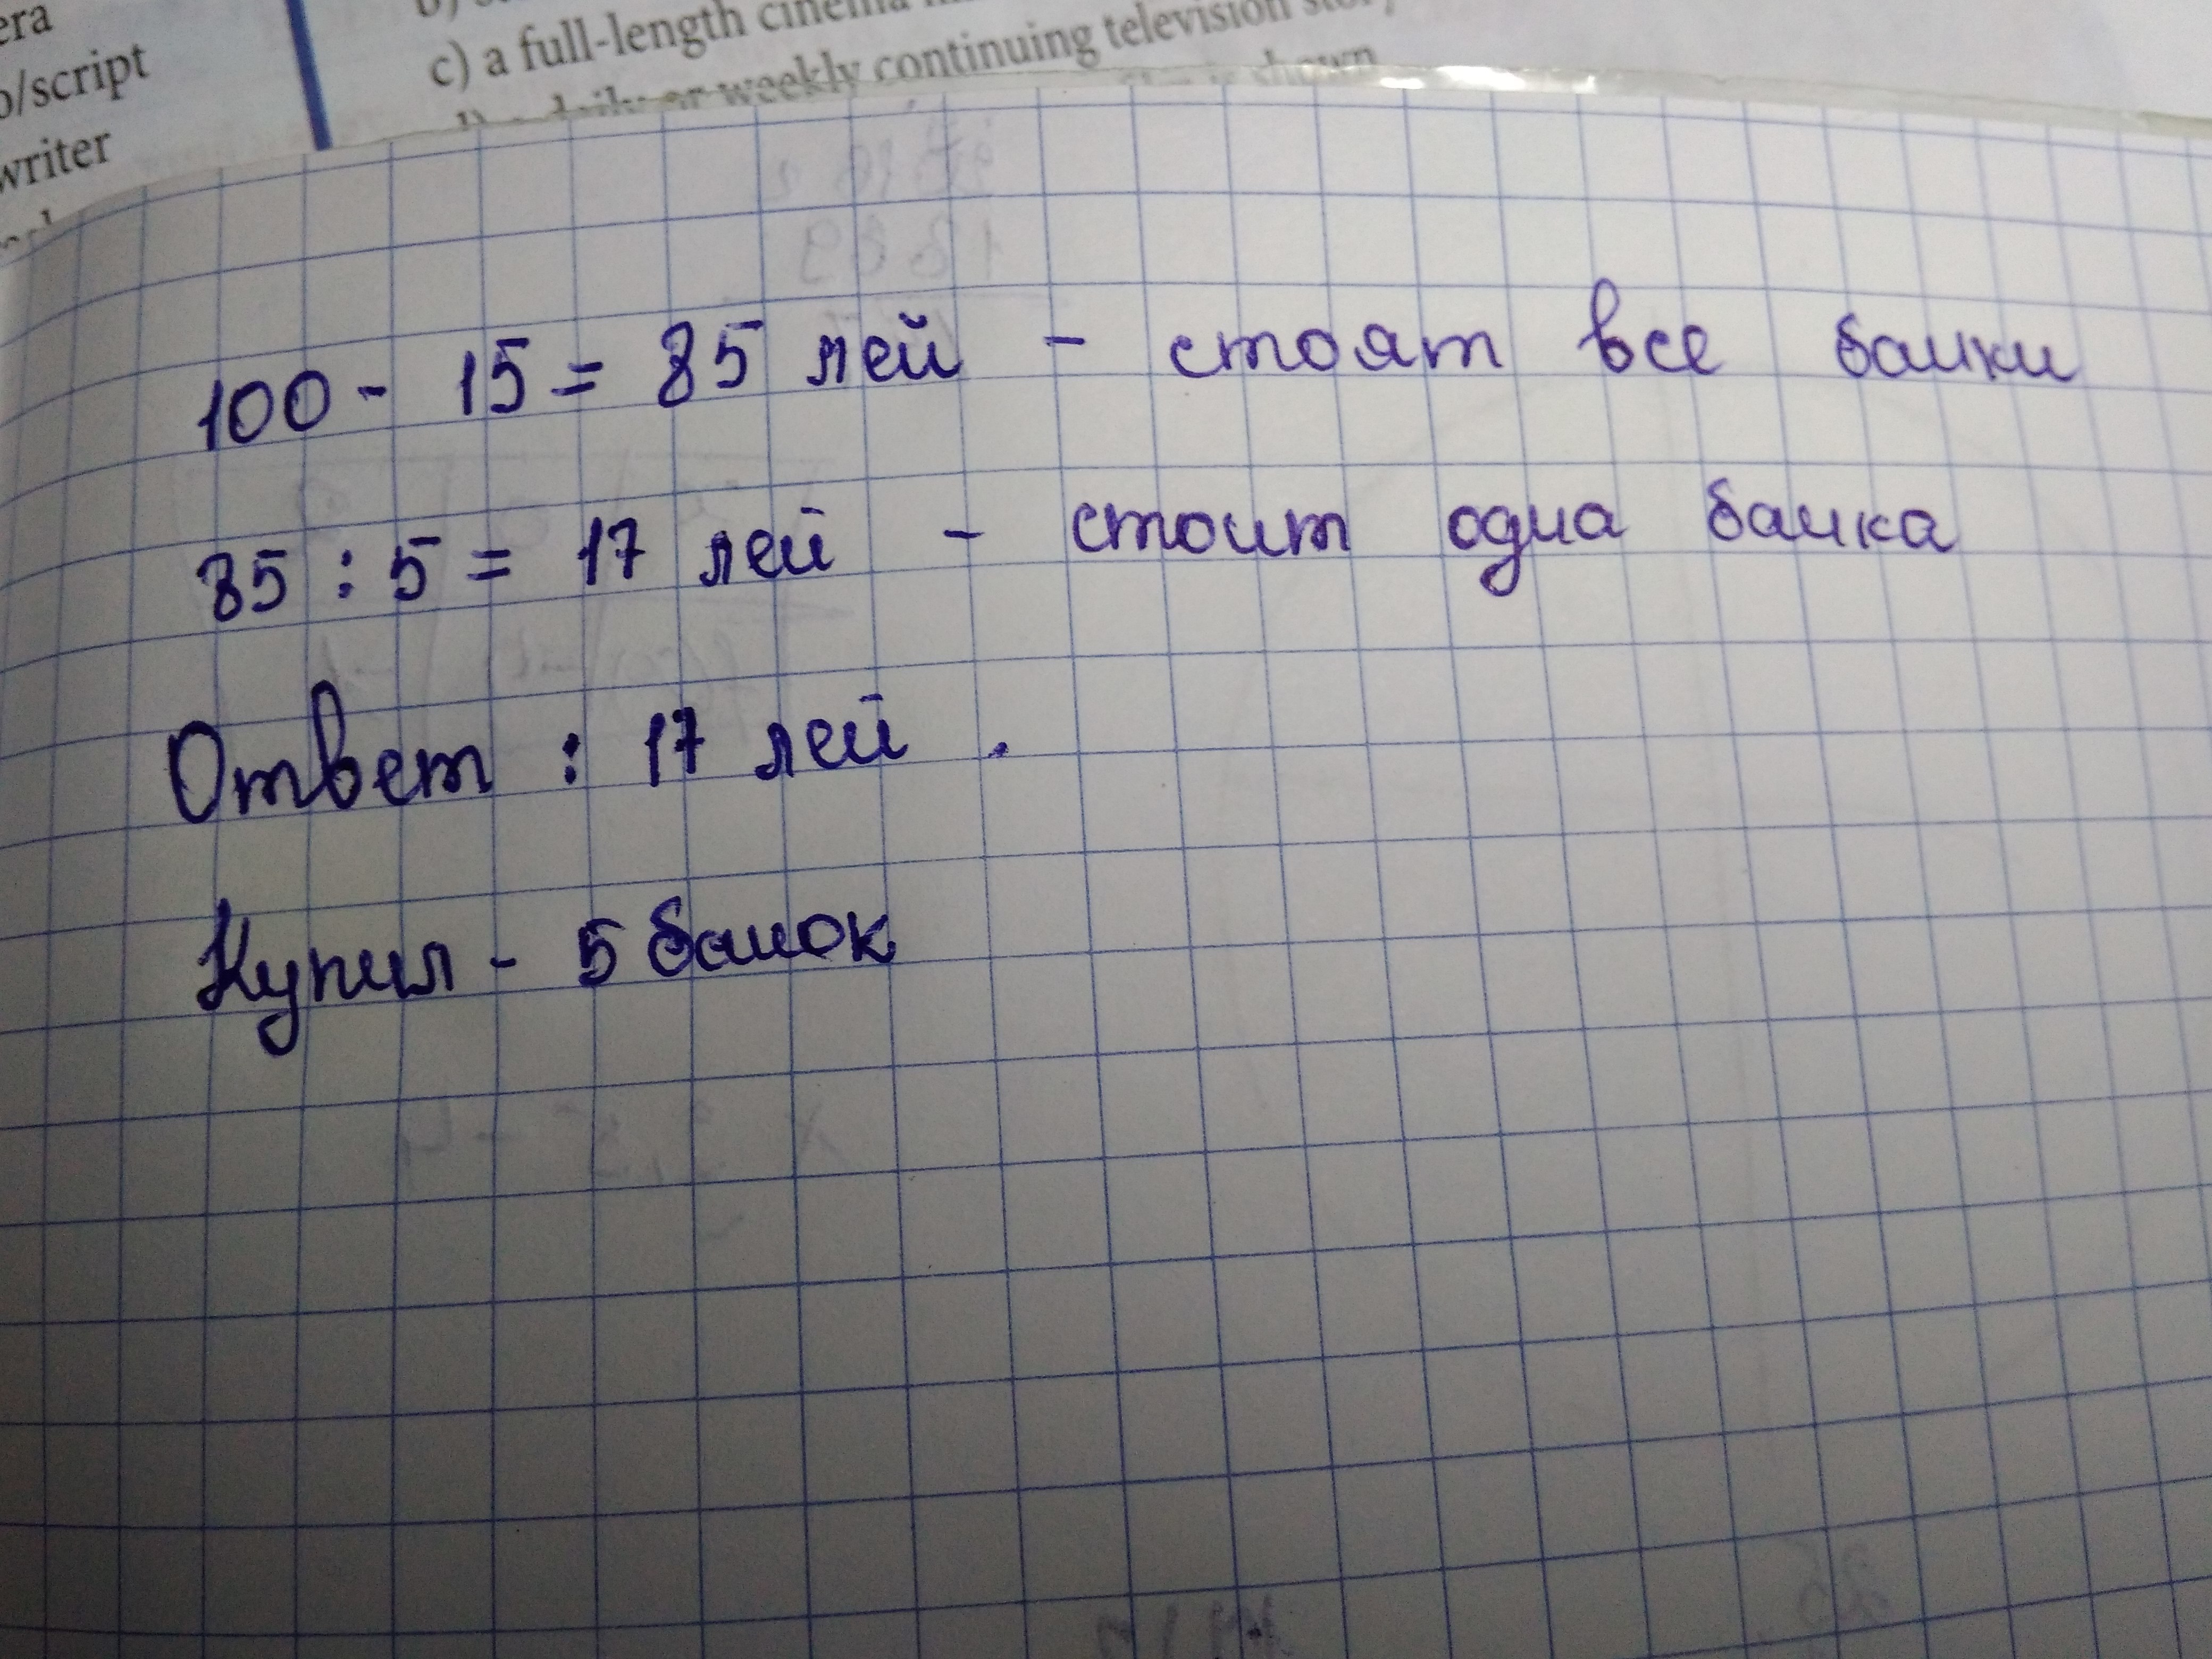 era
o/script
writer
c) a full-length cinema
daily or weekly continuing television story
is shown
100 - 15 = 85 лей - стоят все банки
85 : 5 = 17 лей - стоит одна банка
Ответ : 17 лей .
Купил - 5 банок